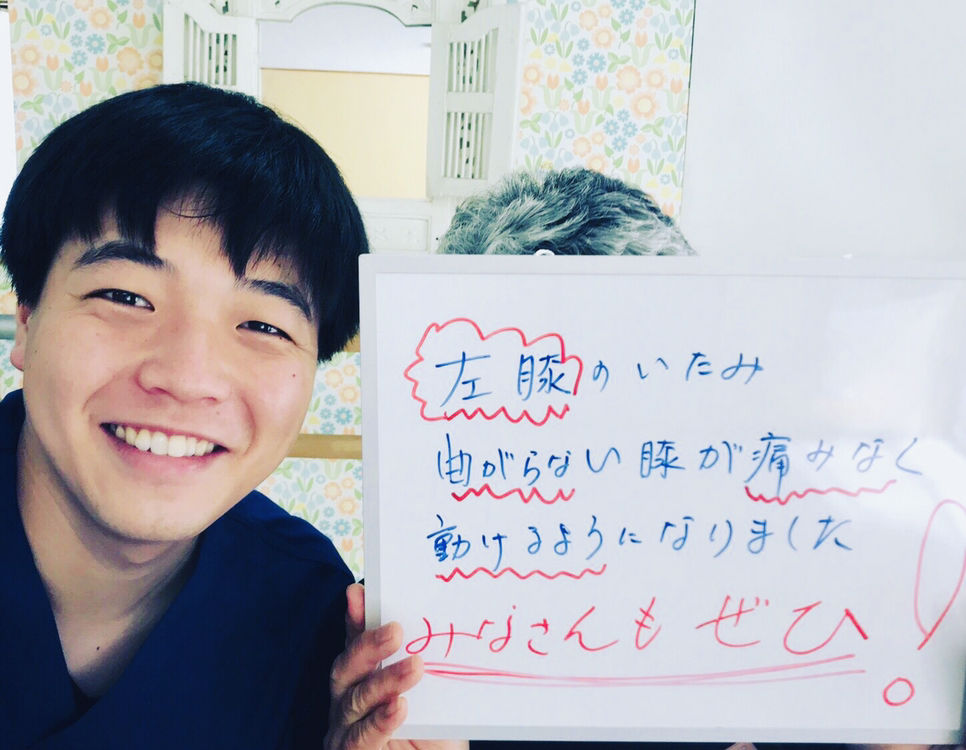 左膝のいたみ
曲がらない膝が痛みなく
動けるようになりました
みなさんもぜひ!